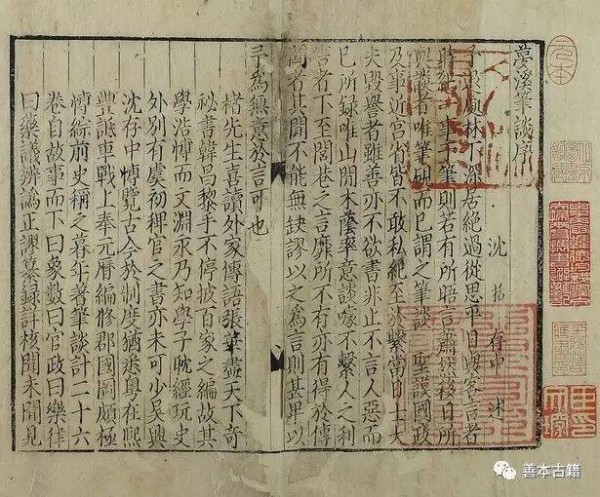 夢溪筆談序
沈 括 存中 述
予退處林下深居絕過從思平日與客言者
時紀一事于筆則若有所晤言蕭然移日所
與談者唯筆硯而已謂之筆談 聖謨國政
及事近宮省皆不敢私紀至於繫當日士大
夫毀譽者雖善亦不欲書非止不言人惡而
已所録唯山間木蔭率意談噱不繫人之利
害者下至閭巷之言靡所不有亦有得於傳
聞者其間不能無缺謬以之爲言則甚卑以
予爲無意於言可也
楮先生喜讀外家傳語張華盡天下奇
祕書韓昌黎手不停披百家之編故其
學浩愽而文淵永乃知學子眈經玩史
外別有虞初稗官之書亦未可少吳興
沈存中愽覽古今於制度猶悉粤在熙
豐詆車戰上奉元曆編修郡國圖頗極
愽綜前史稱之暮年著筆談計二十六
卷自故事而下曰象數曰官政曰樂律
曰藥議辨譌正謬纂録詳核聞未聞見
元本
善本古籍